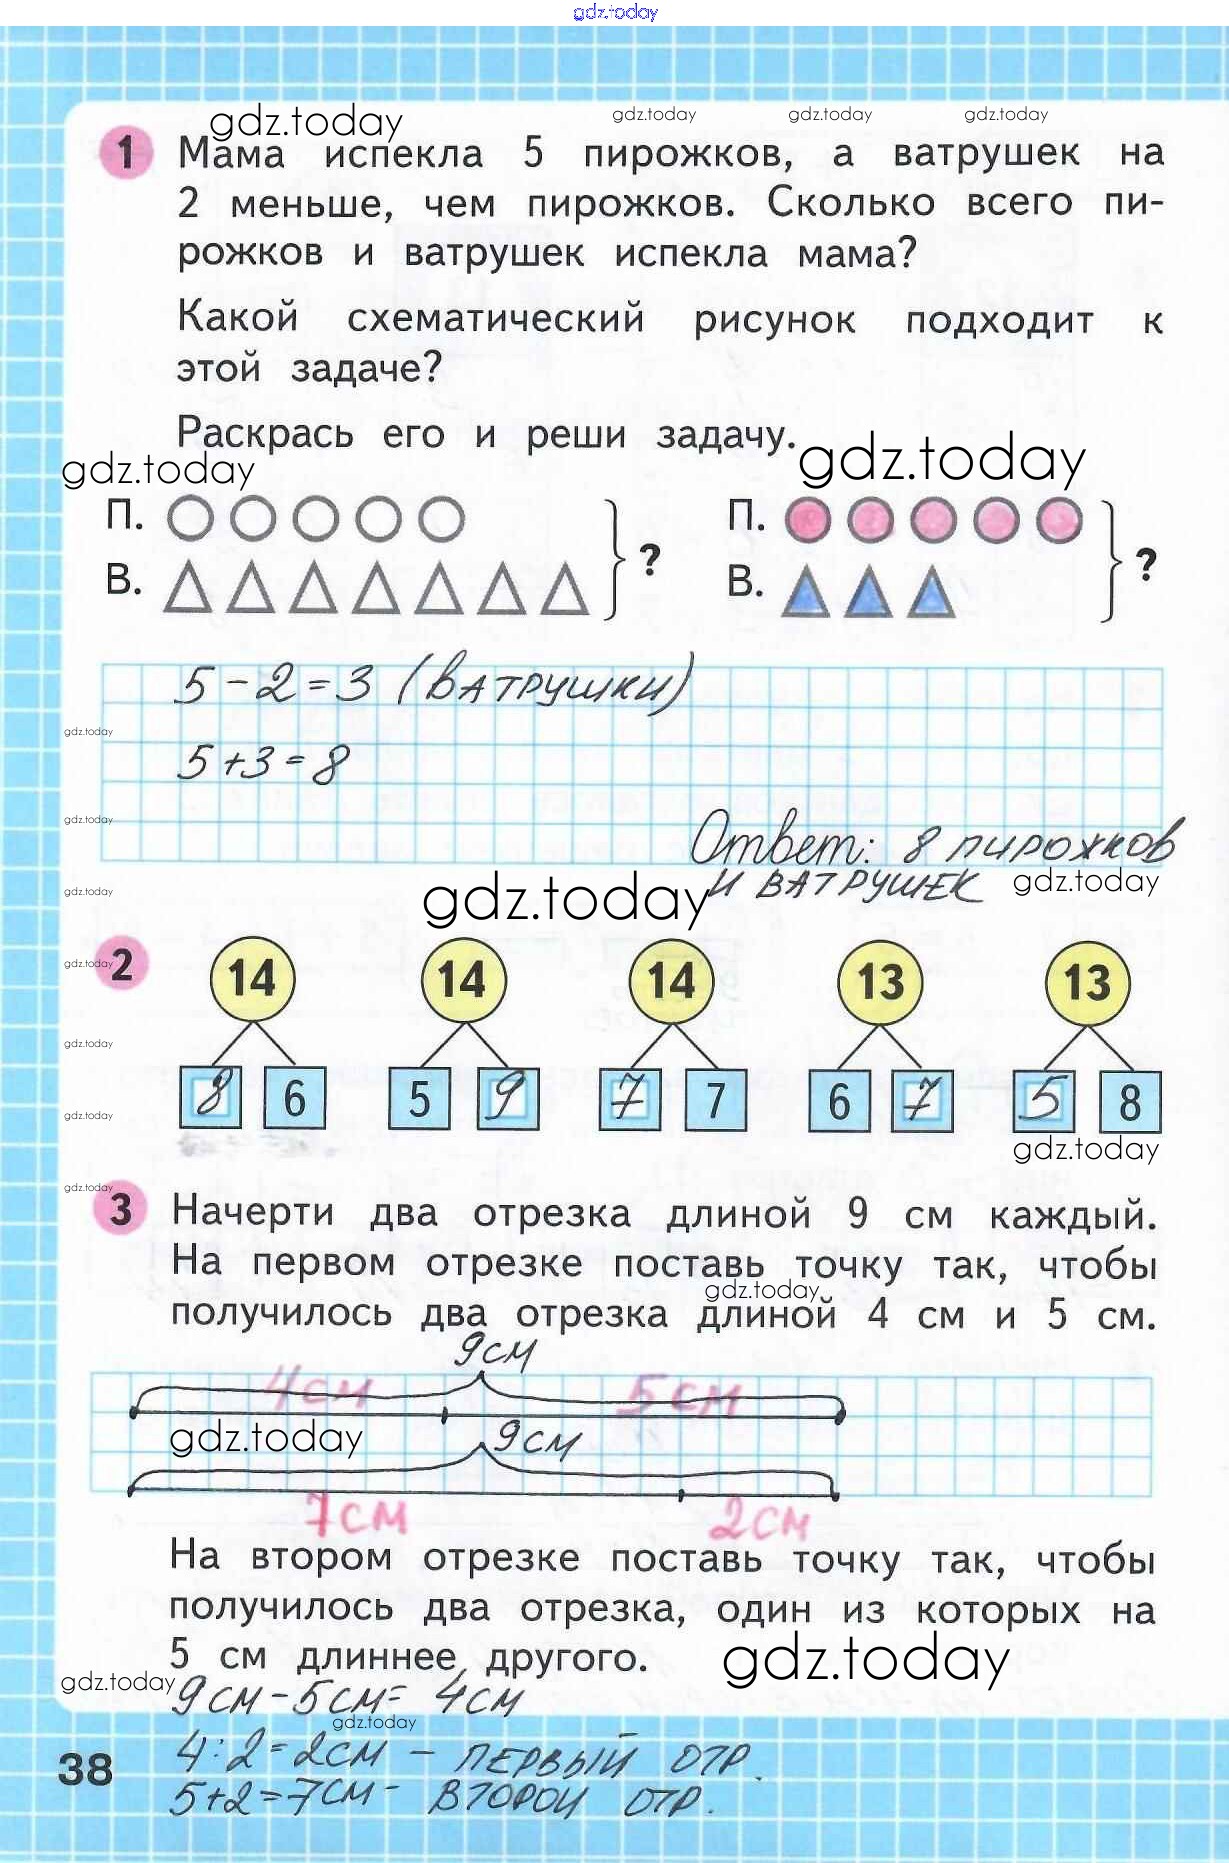 gdz.today
gdz.today gdz.today gdz.today gdz.today
1 Мама испекла 5 пирожков, а ватрушек на
2 меньше, чем пирожков. Сколько всего пи-
рожков и ватрушек испекла мама?
Какой схематический рисунок подходит к
этой задаче?
Раскрась его и реши задачу.
gdz.today gdz.today
П. П.
? ?
В. В.
5 - 2 = 3 (ватрушки)
gdz.today
5 + 3 = 8
gdz.today
Ответ: 8 пирожков
и ватрушек
gdz.today gdz.today gdz.today
2 14 14 14 13 13
gdz.today
gdz.today
8 6 5 9 7 7 6 7 5 8
gdz.today
gdz.today
gdz.today
3 Начерти два отрезка длиной 9 см каждый.
На первом отрезке поставь точку так, чтобы
gdz.today
получилось два отрезка длиной 4 см и 5 см.
9см
4см 5см
gdz.today 9см
7см 2см
На втором отрезке поставь точку так, чтобы
получилось два отрезка, один из которых на
5 см длиннее другого.
gdz.today gdz.today
9см - 5см = 4см
gdz.today
4:2=2см - первый отр.
38
5+2=7см - второй отр.
gdz.today